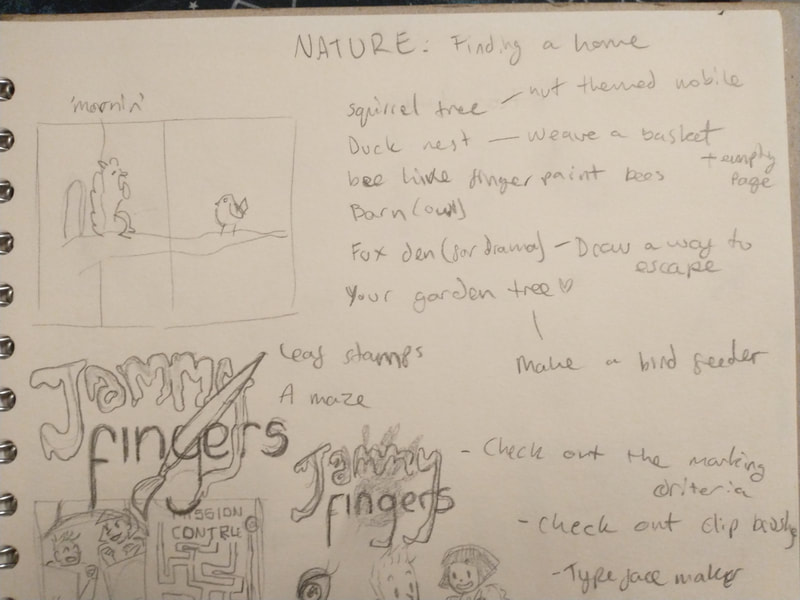 NATURE: Finding a home
'mornin'
squirrel tree — nut themed mobile
Duck nest — weave a basket
+ empty page
bee hive finger paint bees
Barn (owl)
Fox den (for drama) — Draw a way to escape
Your garden tree ♡
Make a bird feeder
Leaf stamps
A maze
Jammy
fingers
MISSION
CONTRL
Jammy
fingers
- Check out the marking criteria
- Check out clip
- Typeface maker